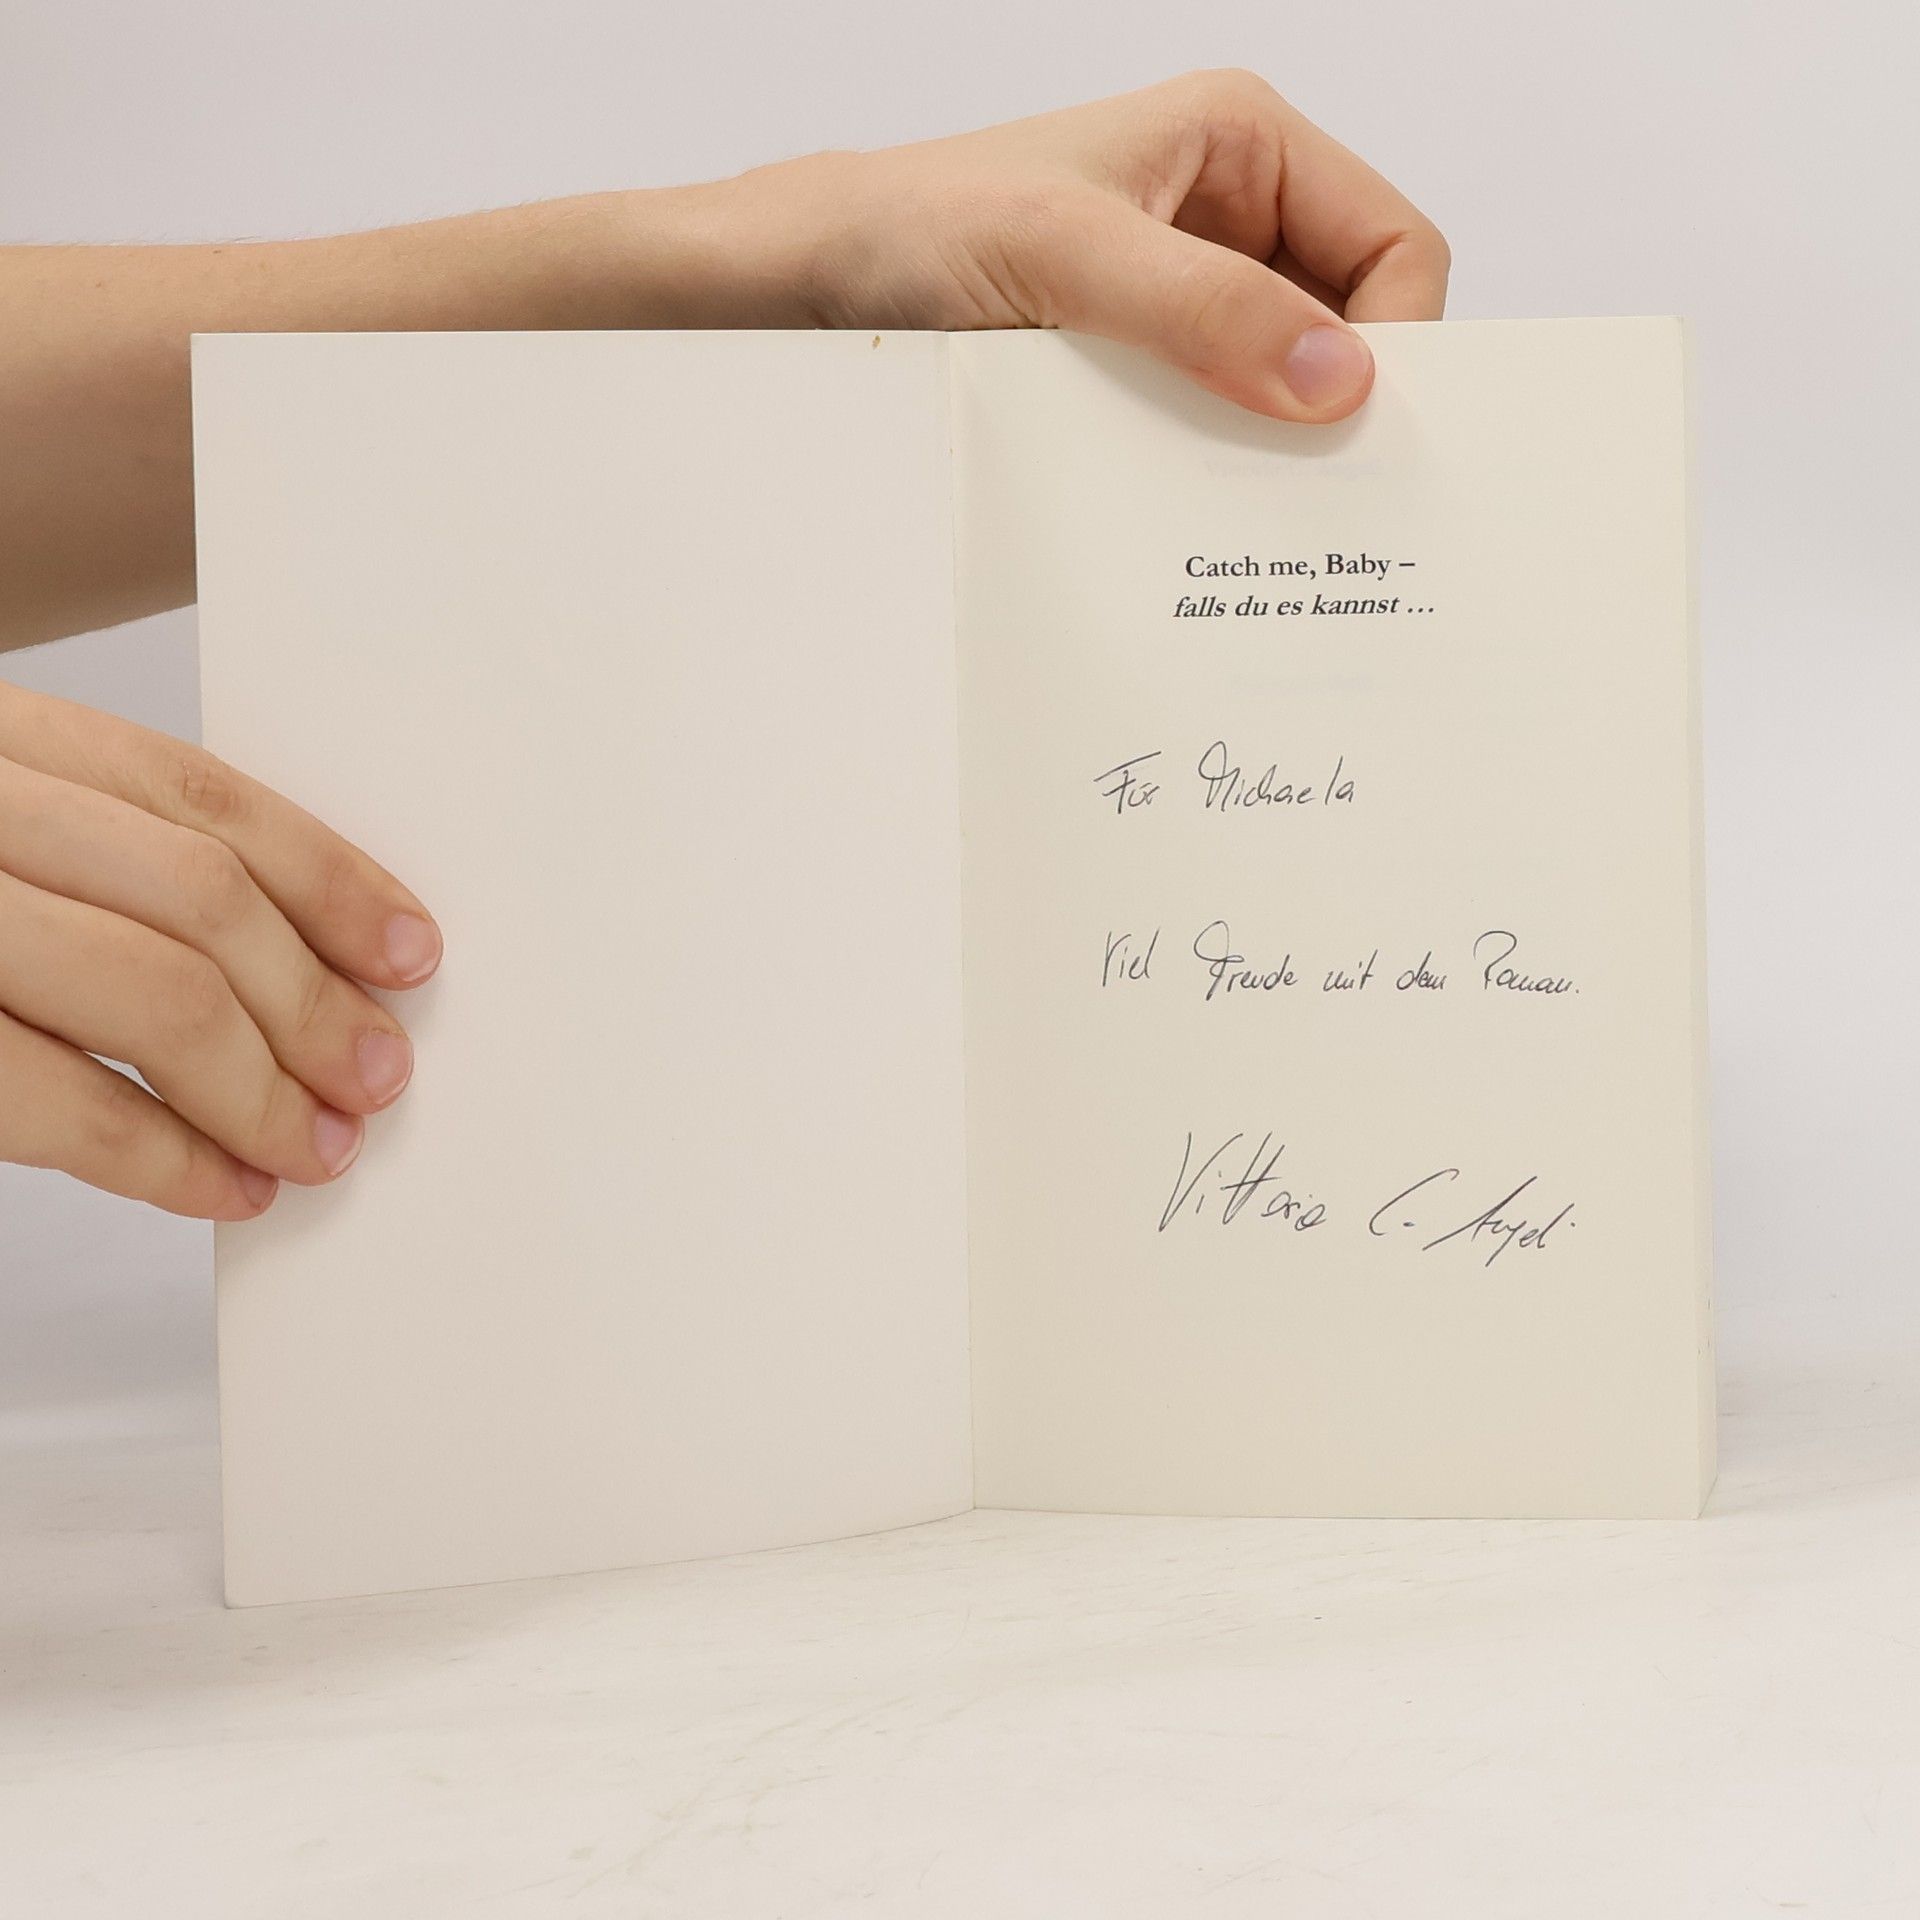 Catch me, Baby –
falls du es kannst …
Für Michaela
Viel Freude mit dem Roman.
Vittoria C. Angeli